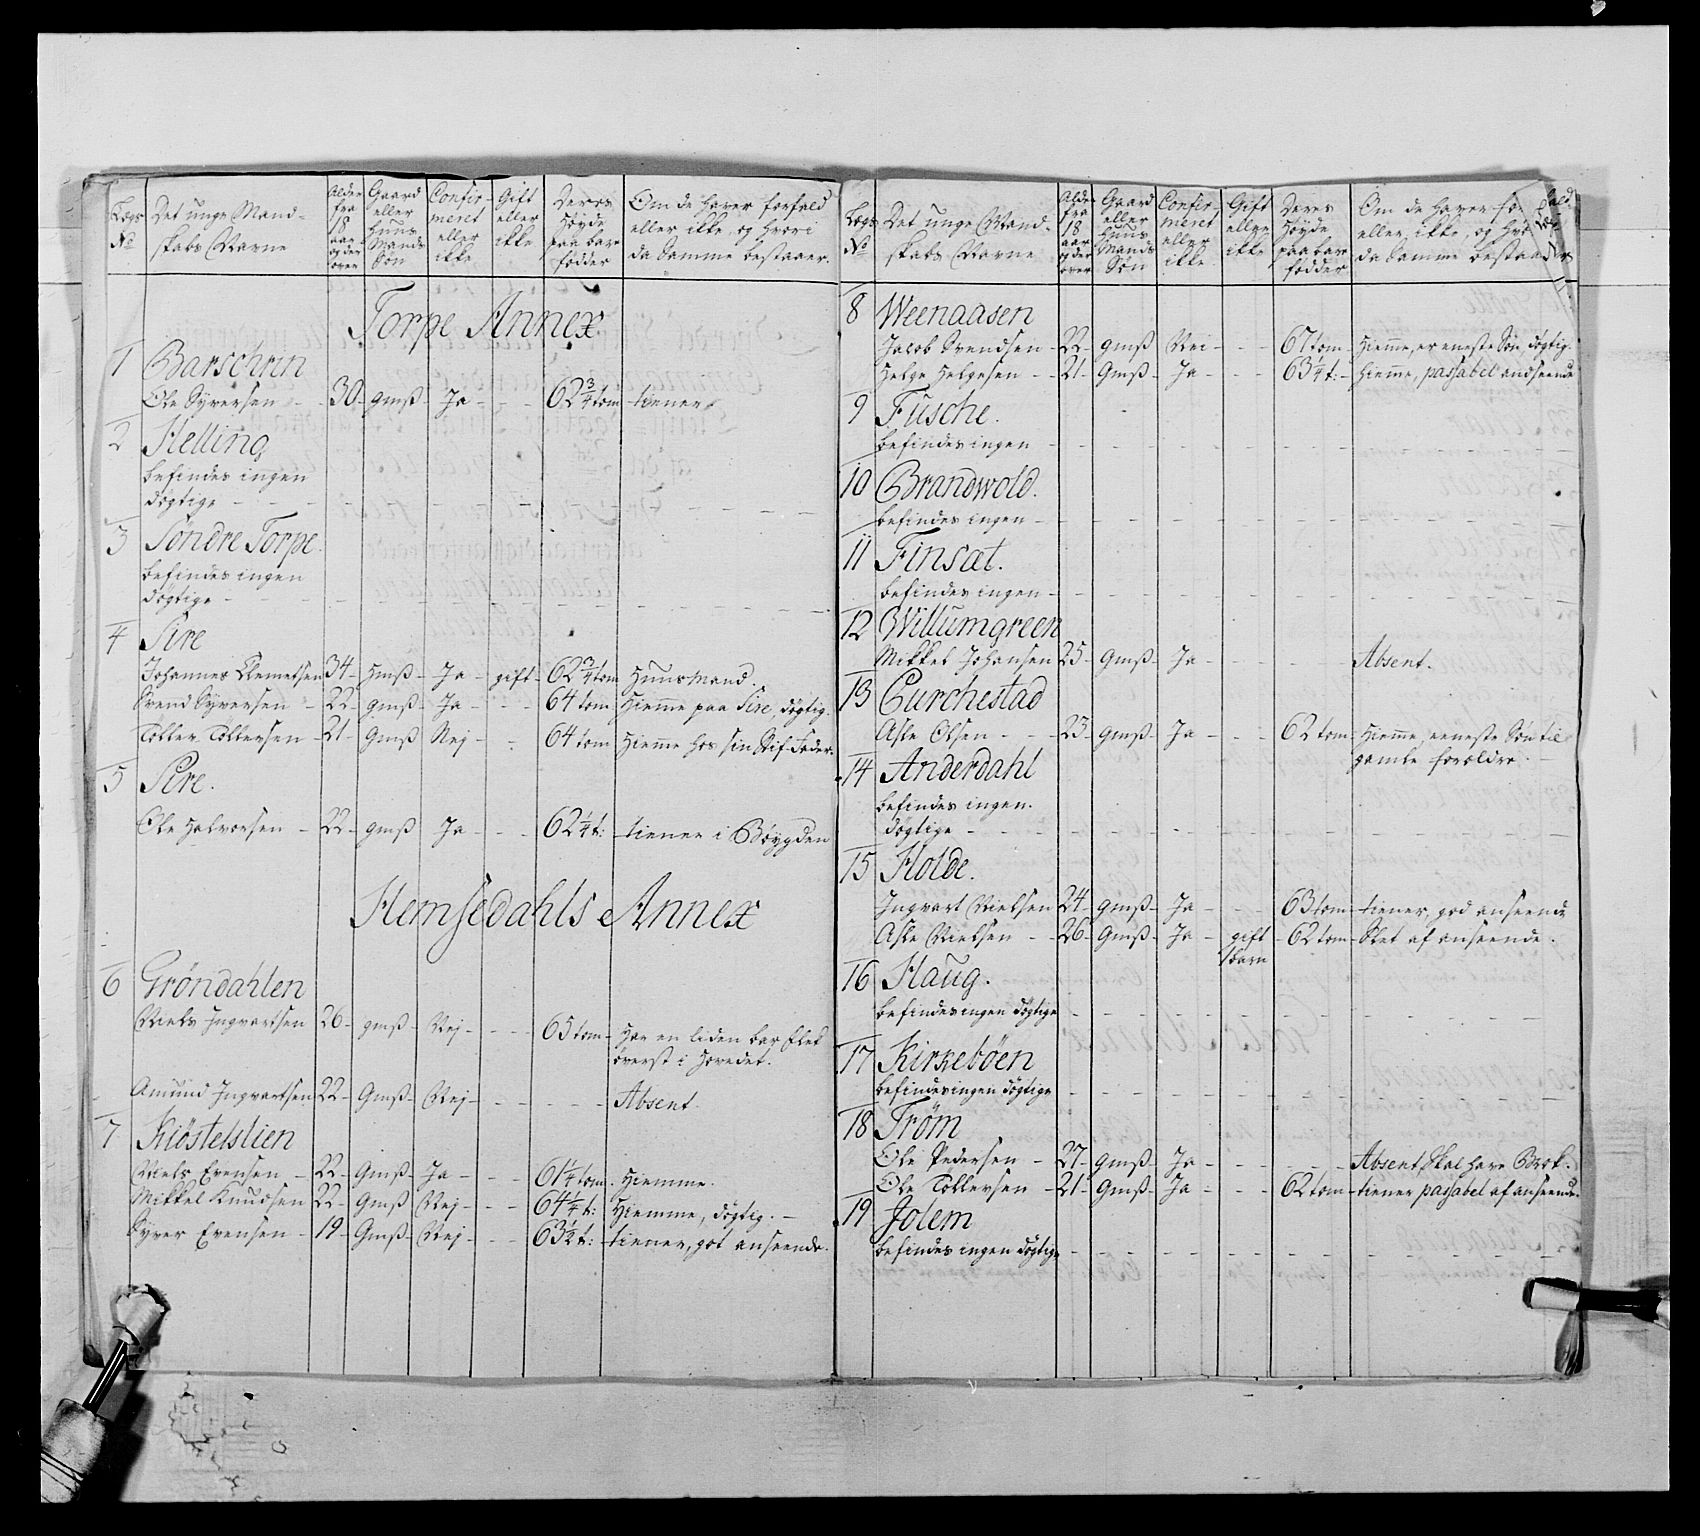 Lægs No | Det unge Mand- skabs Navne | Alder fra 18 aar og der over | Gaard eller Huus Mands Søn | Confir- meret eller ikke | Gift eller ikke | Deres Høyde paa bare födder | Om de haver forfald eller ikke, og hvori da samme bestaaer.
Torpe Annex
1 Barschrin
Ole Syversen - 30 - gmß - Ja - - - 62 3/4 tom - tiener
2 Helling
befindes ingen
døgtige - - -
3 Söndre Torpe.
befindes ingen
døgtige - - -
4 Sire
Johannes Clemetsen 34 - Hmß - Ja - gift - 62 3/4 tom Huusmand.
Svend Syversen - 22 - gmß - Ja - - - 64 tom Hiemme paa Sire, døgtig.
Toller Tollersen - 21 - Gmß Nej - - 64 tom Hiemme hos sin Stif-Fader.
5 Sire.
Ole Halvorsen - 22 - gmß Ja - - - 62 1/4 t: - tiener i Böygden
Hemsedahls Annex
6 Gröndahlen
Niels Ingvartsen 26 - gmß - Nej - - - 65 tom - Har en liden bar flek
överst i Hovedet.
Amund Ingvartsen 22 - Gmß - Nej - - - - - Absent.
7 Kiöstelslien
Niels Evensen - 22 - Gmß - Ja - - - 61 1/4 tom. Hiemme.
Mikkel Knudsen 22 - Gmß Nej - - - 64 1/4 t: Hiemme, døgtig. -
Syver Evensen - 19 - Gmß - Nej - - - 63 1/2 t: - tiener, got anseende.
Lægs No | Det unge Mand- skabs Navne | Alder fra 18 aar og der over | Gaard eller Huus Mands Søn | Confir- meret eller ikke | Gift eller ikke | Deres Høyde paa bare födder | Om de haver eller ikke, og da samme bestaaer
8 Weenaasen
Jacob Svendsen - 22 - gmß Nei - - - 67 tom - Hiemme, er eneste Søn, døgtig.
Helge Helgesen - - 21 - Gmß - Ja - - - 63 1/4 t: - Hiemme, passabel andseende
9 Fusche.
befindes ingen - - -
10 Brandwold.
befindes ingen - - -
11 Finsæt.
befindes ingen - - -
12 Willumgreen
Mikkel Johansen 25 - Gmß - Ja - - - - Absent.
13 Eurchestad
Asle Olsen - - - 23 - gmß - Ja - - - 62 tom - Hiemme, eeneste Søn til
gamle forældre. -
14 Anderdahl
befindes ingen.
døgtige - - -
15 Holde.
Ingvart Nielsen 24 - gmß - Ja - - - 63 tom - tiener, god anseende
Asle Nielsen - - 26 - Gmß - Ja - gift - 62 tom - Slet af anseende.
1 barn
16 Haug.
befindes ingen døgtige - - -
17 Kirkebøen
befindes ingen døgtige - - -
18 Tröm
Ole Pedersen - 27 - gmß - Ja - - - - Absent, skal have Brok.
Ole Tollersen - 21 - Gmß - Ja - - - 62 tom - tiener passabel af anseende.
19 Jolem
befindes ingen døgtige - - -